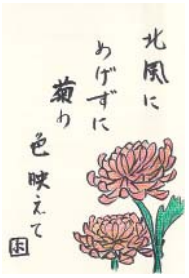 北風に
めげずに
菊の
色映えて